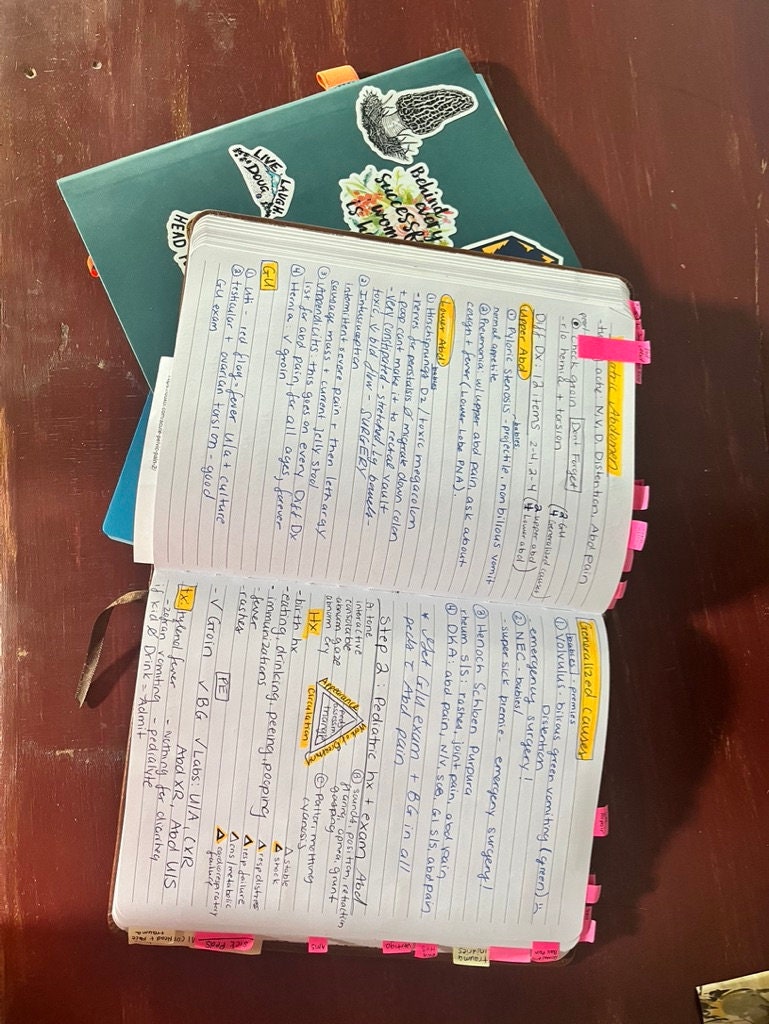 Abdomen
N.V.D. Distention, Abd pain
check groin Don't Forget
- r/o hernia + torsion
Diff Dx: 12 items 2-4, 2-4 (2 upper abd 4 Lower abd) (2 GU 4 Generalized causes)
Upper Abd
① Pyloric stenosis - projectile, nonbilious vomit
normal appetite
② Pneumonia: w/ upper abd pain, ask about
cough + fever (Lower Lobe PNA)
Lower Abd
① Hirschprungs Dz / toxic megacolon
- nerves for peristalsis ∅ migrate down colon
+ poop cant make it to rectal vault
- very constipated - stretched, Lg bowels -
toxic, ↓ bld flow - SURGERY
② Intusscception
intermittent severe pain + then lethargy
sausage mass + current jelly stool
③ Appendicitis: this goes on every Diff Dx
list for abd pain, for all ages, forever
④ Hernia: √ groin
GU
① Uti - red flag = fever u/a + culture
② testicular + ovarian torsion - good
GU exam
Generalized Causes
babies - premies
① Volvulus - bilious green vomiting (green)
Distention
emergency surgery!
② NEC - babies
- super sick premie - emergency surgery!
③ Henoch Schloen Purpura
rheum s/s: rashes, joint pain, abd pain
④ DKA: abd pain, N/V, SOB, GI s/s, abd pain
GU exam + BG in all
peds c̄ Abd pain
Step 2: Pediatric hx + exam Abd
A: tone
interactive
consolable
abnorm gaze
abnorm cry
Appearance
Circulation
triangle
Ⓑ sounds, position, retraction
flaring, apnea, grunt
gasping
Ⓒ pallor, mottling
cyanosis
Hx
- birth hx
- eating, drinking, peeing, pooping
- immunizations
- fever
- rashes
△ stable
△ shock
△ resp distress
△ resp failure
△ cns/metabolic
△ cardiorespiratory
failure
PE
- √ Groin √ BG √ Labs: U/A, CXR
Abd XR, Abd U/S
tx - tylenol fever - nothing for diarrhea
- zofran vomiting - pedialyte
if kid ∅ Drink = Admit
LIVE LAUGH
DOUG
Behind
every
success
HEAD
SICK PEDS
AMS
vertigo
trauma